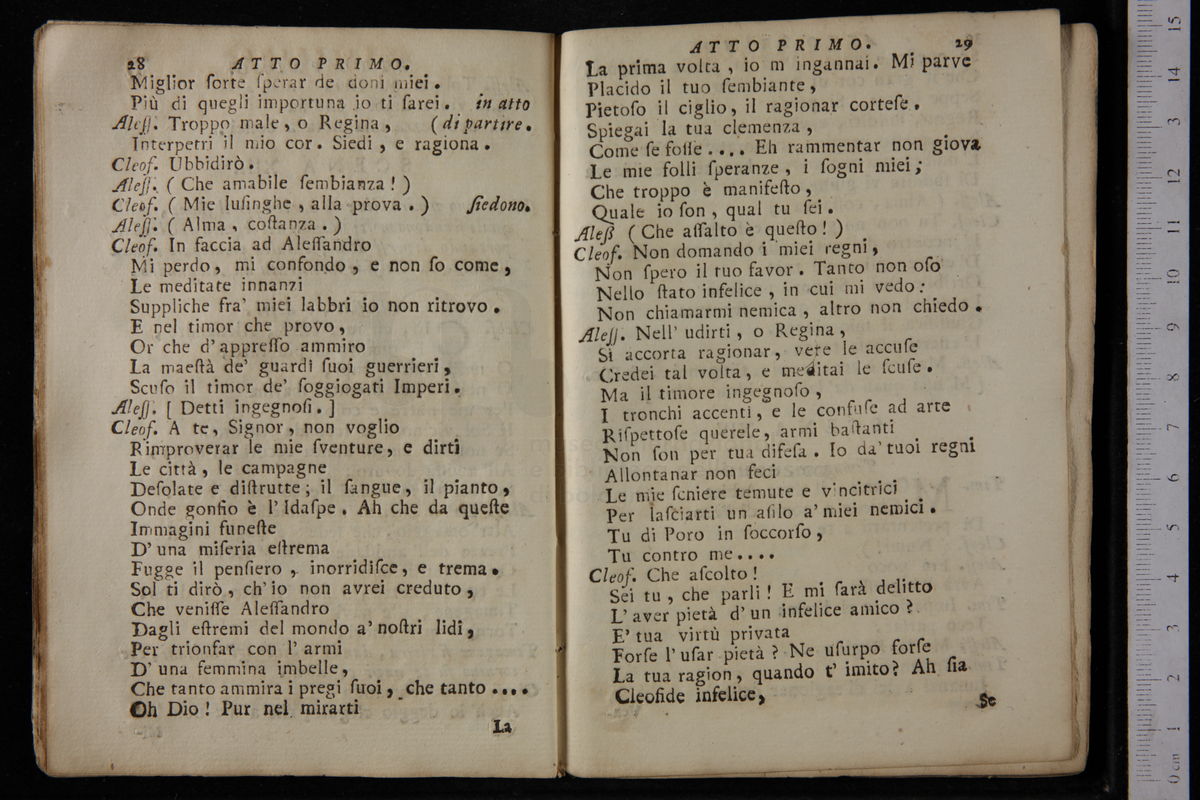 28 ATTO PRIMO.
Miglior ſorte ſperar de doni miei.
Più di quegli importuna io ti ſarei. in atto
Aleſſ. Troppo male, o Regina, (di partire.
Interpetri il mio cor. Siedi, e ragiona.
Cleof. Ubbidirò.
Aleſſ. ( Che amabile ſembianza! )
Cleof. ( Mie luſinghe, alla prova. ) ſiedono.
Aleſſ. ( Alma, coſtanza. )
Cleof. In faccia ad Aleſſandro
Mi perdo, mi confondo, e non ſo come,
Le meditate innanzi
Suppliche fra' miei labbri io non ritrovo.
E nel timor che provo,
Or che d'appreſſo ammiro
La maeſtà de' guardi ſuoi guerrieri,
Scuſo il timor de' ſoggiogati Imperi.
Aleſſ. [ Detti ingegnoſi. ]
Cleof. A te, Signor, non voglio
Rimproverar le mie ſventure, e dirti
Le città, le campagne
Deſolate e diſtrutte; il ſangue, il pianto,
Onde gonfio è l'Idaſpe. Ah che da queſte
Immagini funeſte
D'una miſeria eſtrema
Fugge il penſiero, inorridiſce, e trema.
Sol ti dirò, ch'io non avrei creduto,
Che veniſſe Aleſſandro
Dagli eſtremi del mondo a' noſtri lidi,
Per trionfar con l'armi
D'una femmina imbelle,
Che tanto ammira i pregi ſuoi, che tanto ....
Oh Dio! Pur nel mirarti
La
ATTO PRIMO. 29
La prima volta, io m ingannai. Mi parve
Placido il tuo ſembiante,
Pietoſo il ciglio, il ragionar corteſe.
Spiegai la tua clemenza,
Come ſe foſſe .... Eh rammentar non giova
Le mie folli ſperanze, i ſogni miei;
Che troppo è manifeſto,
Quale io ſon, qual tu ſei.
Aleß ( Che aſſalto è queſto! )
Cleof. Non domando i miei regni,
Non ſpero il tuo favor. Tanto non oſo
Nello ſtato infelice, in cui mi vedo:
Non chiamarmi nemica, altro non chiedo.
Aleſſ. Nell' udirti, o Regina,
Sì accorta ragionar, vere le accuſe
Credei tal volta, e meditai le ſcuſe.
Ma il timore ingegnoſo,
I tronchi accenti, e le confuſe ad arte
Riſpettoſe querele, armi baſtanti
Non ſon per tua difeſa. Io da' tuoi regni
Allontanar non feci
Le mie ſchiere temute e vincitrici
Per laſciarti un aſilo a' miei nemici.
Tu di Poro in ſoccorſo,
Tu contro me....
Cleof. Che aſcolto!
Sei tu, che parli! E mi ſarà delitto
L'aver pietà d'un infelice amico?
E' tua virtù privata
Forſe l'uſar pietà? Ne uſurpo forſe
La tua ragion, quando t' imito? Ah ſia
Cleofide infelice,
Se